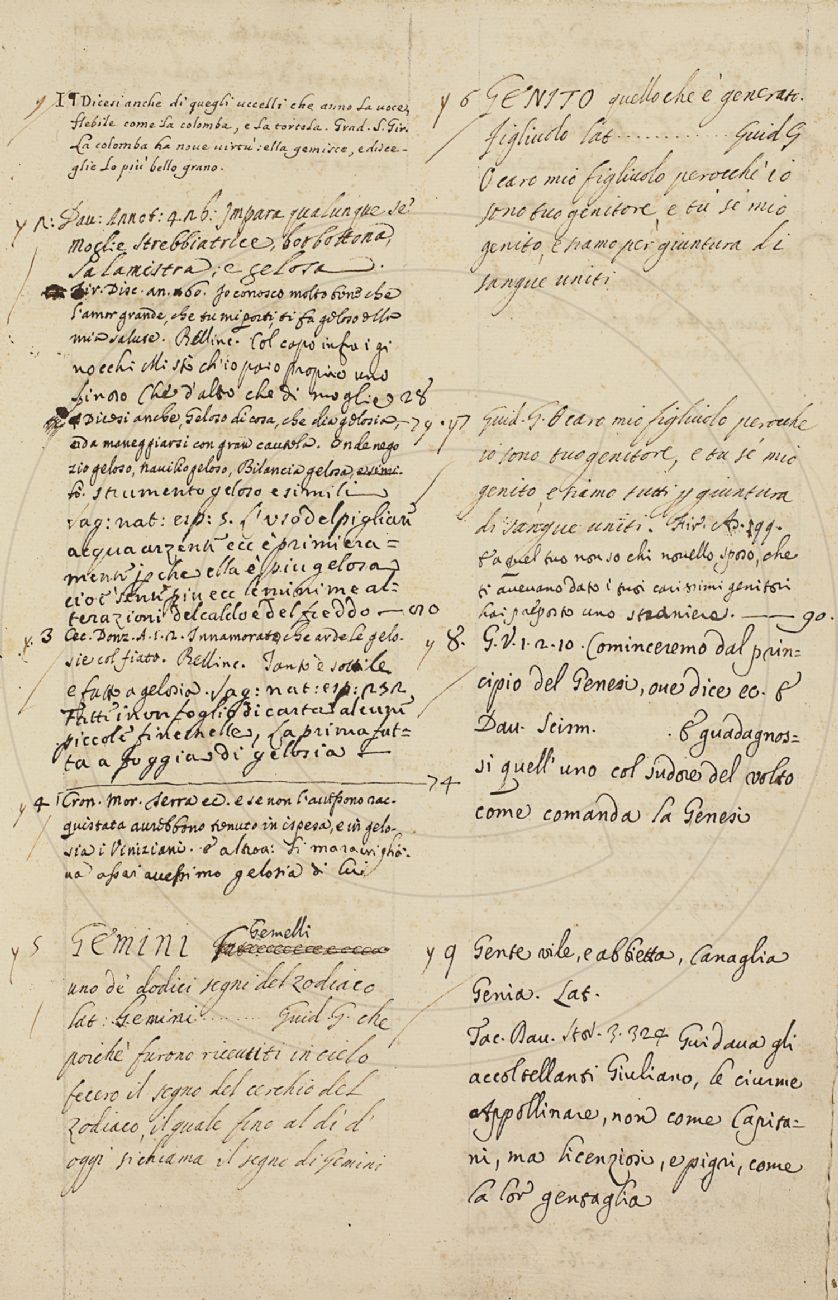 I ¶ Dicesi anche di quegli uccelli che anno la voce
flebile come la colomba, e la tortola. Grad. S. Gir.
La colomba ha nove virtù: ella gemisce, e disce-
glie lo più bello grano.
2: Dav: Annot: 426: Impara qualunque se'
Moglie strebbiatrice, borbottona,
salamistra, e gelosa.
Fir. Disc. an. 60. Io conosco molto bene che
l'amor grande, che tu mi porti ti fa geloso della
mia salute. Bellinc. Col capo infra i gi
nocchi Misto ch'io paio proprio uno
Che d'altro che di moglie 28
¶ Dicesi anche, Geloso di cosa, che dia gelosia,
e da maneggiarsi con gran cautela. Onde nego
zio geloso, navilio geloso, Bilancia gelosa, e simi.
strumento geloso e simili
Sag: nat: esp: 5. L'uso del pigliar
acqua arzente ecc è primiera=
mente pche ella è più gelosa
cioè sente più ecc le minime al-
terazioni del caldo e del freddo
3 Cec. Donz. A. 1. 2. Innamorato, che arde le gelo-
sie col fiato. Bellinc. Tant'è sottile
e fatto a gelosia. Sag: nat: esp: 232
Fatti in un foglio di carta alcuni
piccole finetrelle, La prima fat=
ta a foggia di gelosia
4
4 Cron. Mor. Serra ec. e se non l'avessono rac.
quistata aurebbono tenuto in ispesa, e in gelo-
sia i Viniziani. E altroa: Si maraviglia-
va assai avessimo gelosia di lui
5 GEMINI Gemelli
uno de' dodici segni del zodiaco
lat: Gemini ......... Guid. G. che
poichè furono ricevuti in cielo
fecero il segno del cerchio del
zodiaco, il quale fino al dì d'
oggi si chiama il segno di Gemini
6 GENITO quello che è generato.
figliuolo lat ............. Guid. G
O caro mio figliuolo perocchè io
sono tuo genitore, e tù sè mio
genito, e siamo per giuntura di
sangue uniti
7 Guid. G. O caro mio figliuolo perocchè
io sono tuo genitore, e tu sè mio
genito, e siamo tutti p giuntura
di sangue uniti. Fir. As. 199.
E a quel tuo non so chi novello sposo, che
ti avevano dato i tuoi carissimi genitori
hai preposto uno straniero. 90.
8. G. V. 1. 2. 10. Cominceremo dal prin-
cipio del Genesi, ove dice ec. E
Dav. Scism. E guadagnos=
si quell'uno col sudore del volto
come comanda la Genesi
9 Gente vile, e abbietta, Canaglia
Genia. Lat.
Tac. Dav. Stor. 3. 324 Guidava gli
accoltellanti Giuliano, le ciurme
Appollinare, non come Capita=
ni, ma licenziosi, e pigri, come
la lor gentaglia